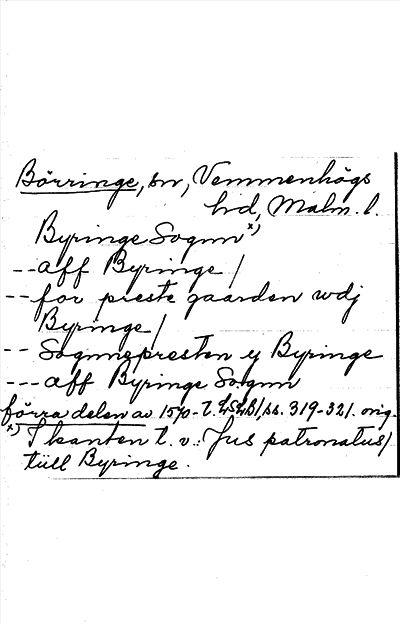 Börringe, sn, Vemmenhögs
hrd, Malm. l.
Byringe Sognn x)
-- aff Byringe /
-- for preste gaarden wdj
Byringe /
-- Sognnepresten y Byringe
--- aff Byringe Sognn
förra delen av 1570-t. ss. 319-321. orig.
x) I kanten t. v.: Jus patronatus /
tüll Byringe.